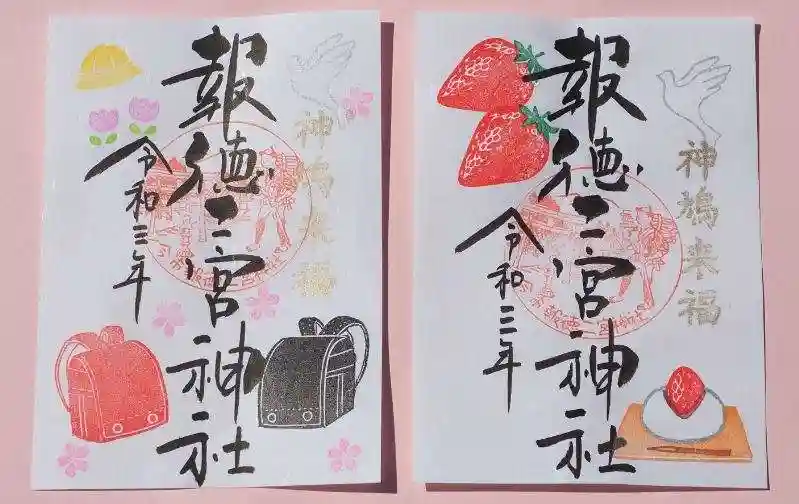 神鳩来福
報徳二宮神社
令和三年
神鳩来福
報徳二宮神社
令和三年